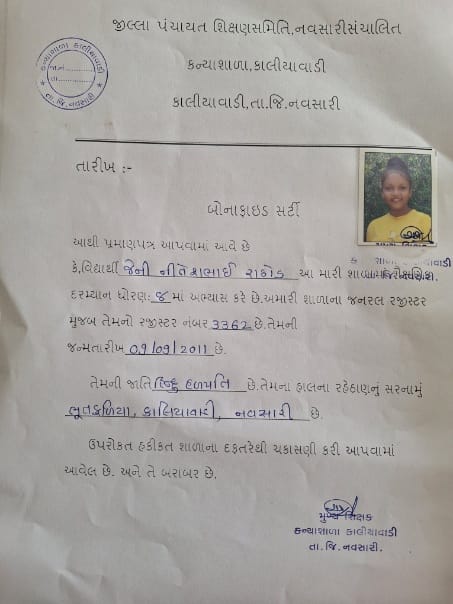 જીલ્લા પંચાયત શિક્ષણસમિતિ,નવસારીસંચાલિત
કન્યાશાળા,કાલીયાવાડી
કાલીયાવાડી,તા.જિ.નવસારી
કન્યાશાળા કાલીયાવાડી
જા.નં.
તા.
તા.જિ.નવસારી
તારીખ :-
બોનાફાઇડ સર્ટી
આથી પ્રમાણપત્ર આપવામાં આવે છે
કે,વિદ્યાર્થી જેની નીતેશભાઈ રાઠોડ આ મારી
દરમ્યાન ધોરણઃ ૪ માં અભ્યાસ કરે છે.અમારી શાળાના જનરલ રજીસ્ટર
મુજબ તેમનો રજીસ્ટર નંબર 3362 છે.તેમની
જન્મતારીખ 09/09/2011 છે.
તેમની જાતિ હિન્દુ હળપતિ છે.તેમના હાલના રહેઠાણનું સરનામું
ભૂતફળિયા, કાલિયાવાડી, નવસારી છે.
ઉપરોક્ત હકીકત શાળાના દફતરેથી ચકાસણી કરી આપવામાં
આવેલ છે. અને તે બરાબર છે.
મુખ્ય શિક્ષક
કન્યાશાળા કાલીયાવાડી
તા. જિ. નવસારી.